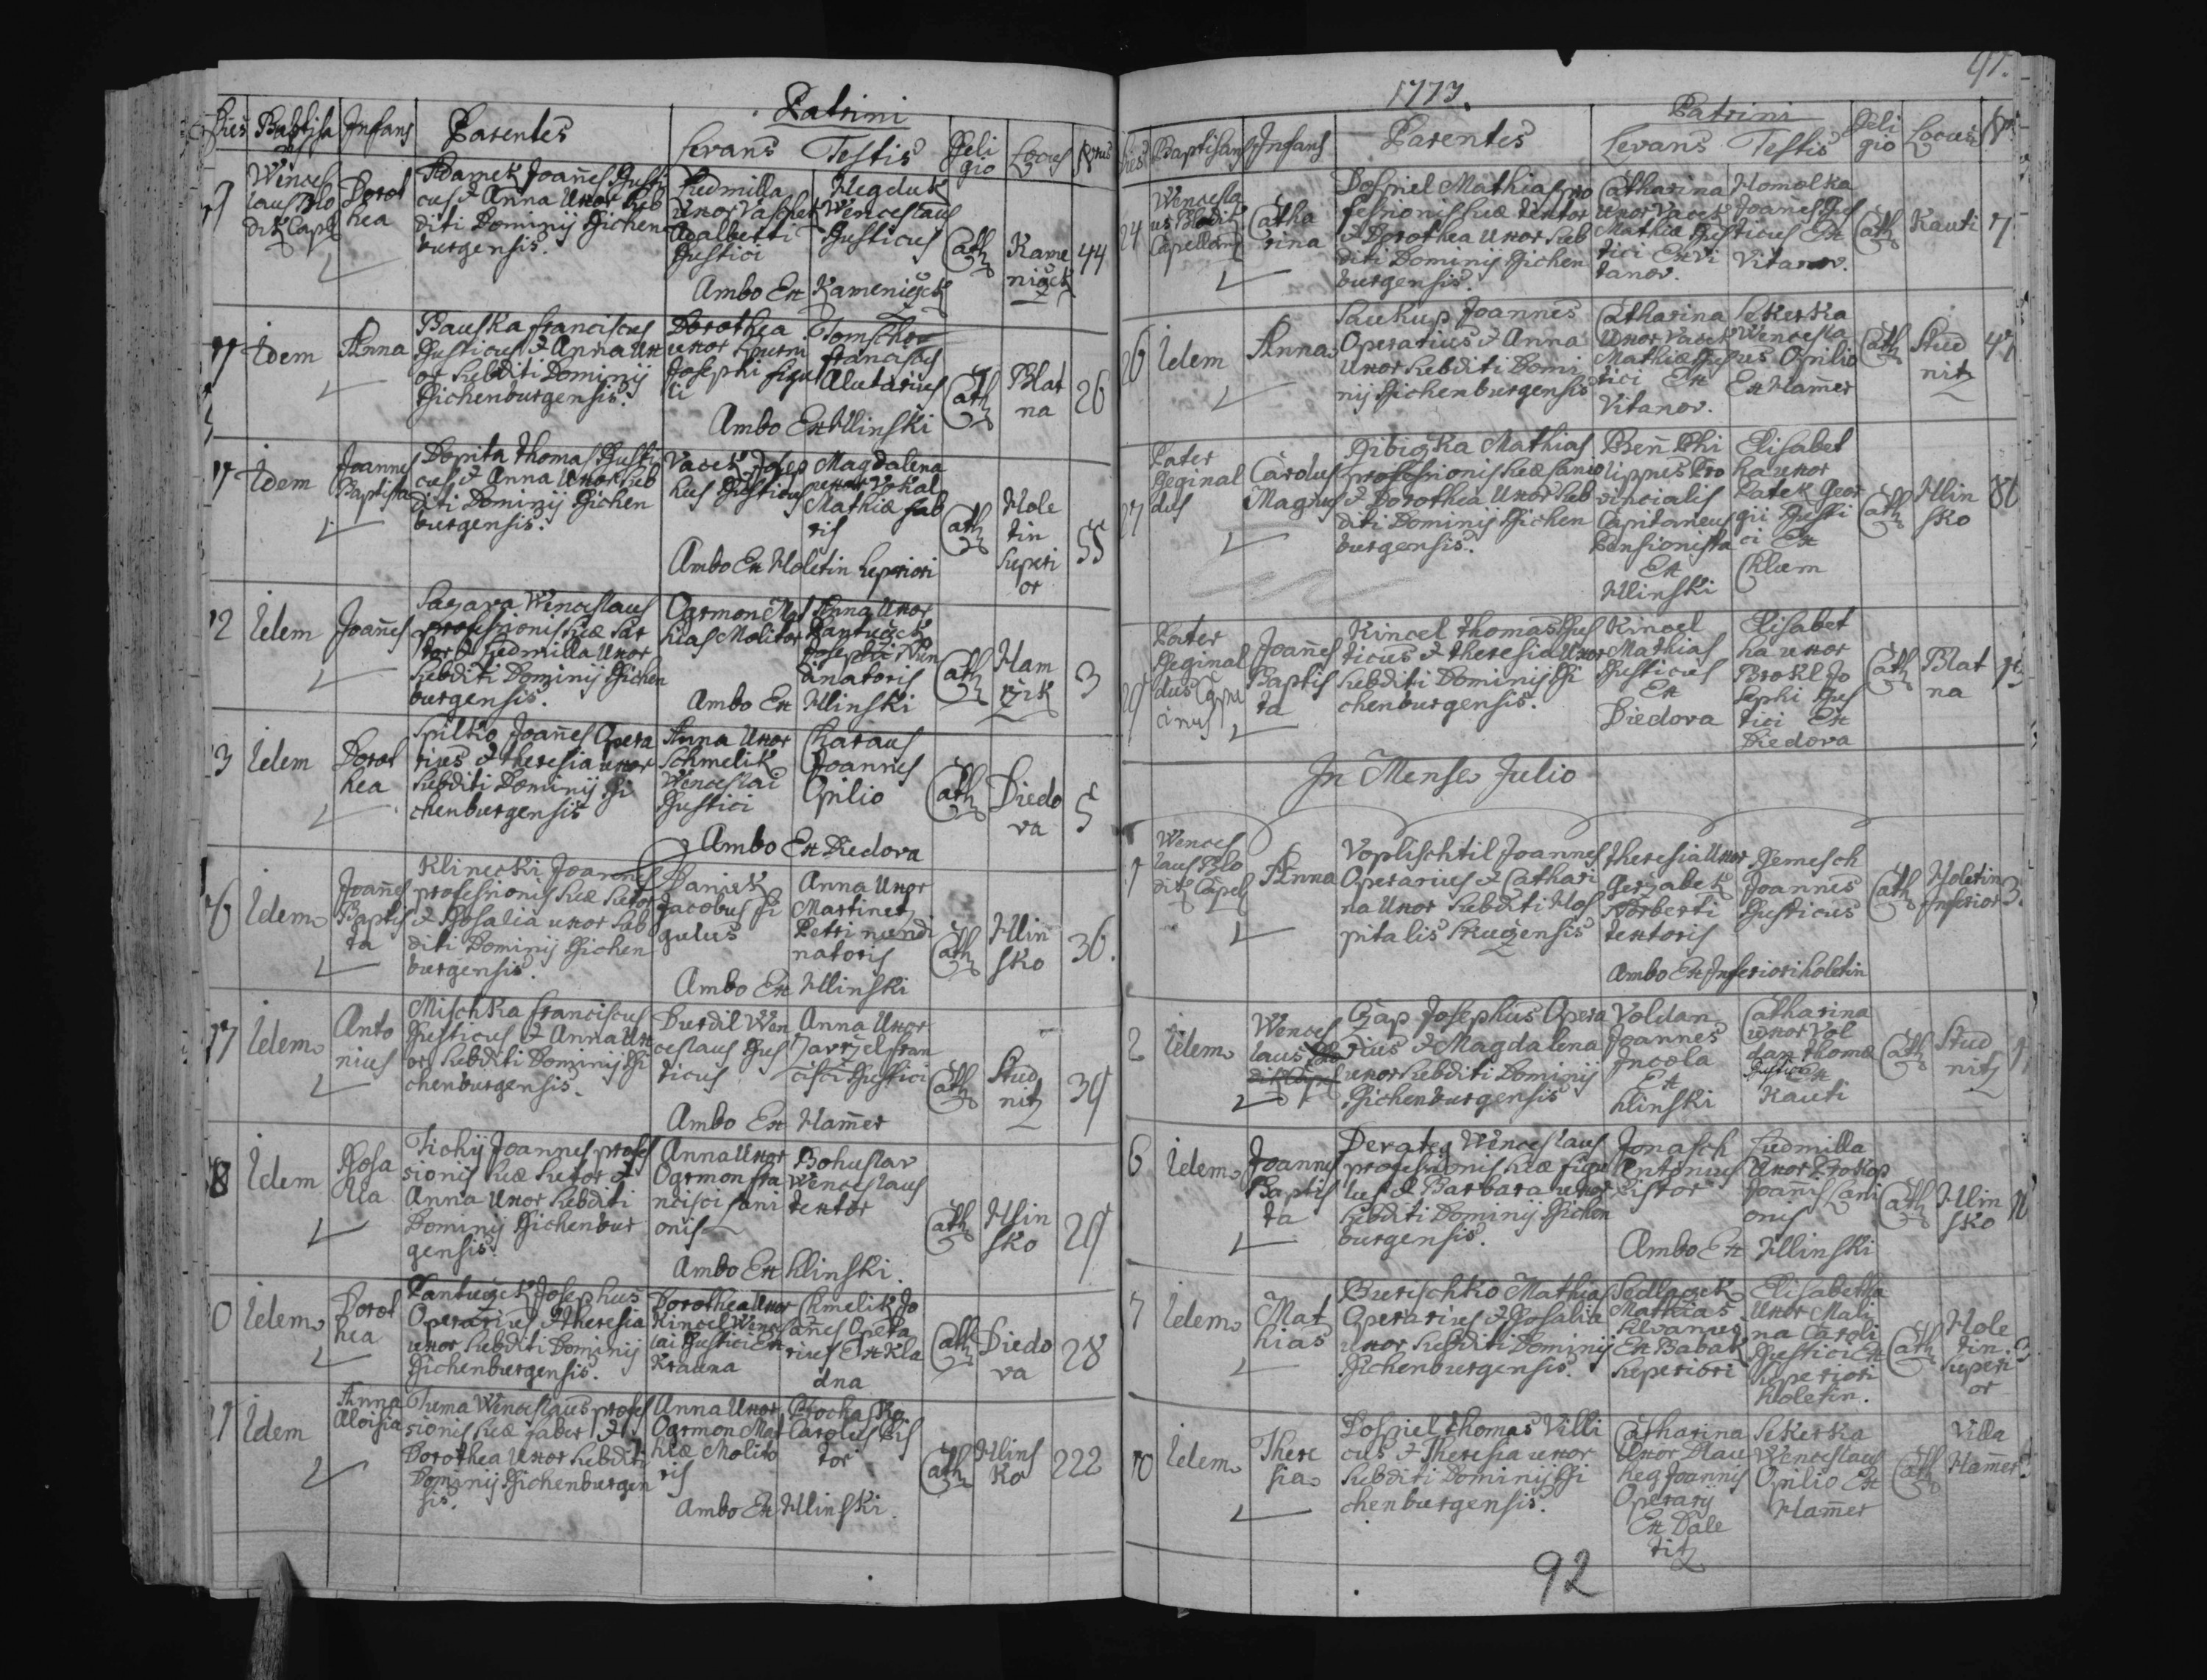 Patrini
Dies Baptisans Infans Parentes Levans Testis Religio Locus Nrus
9 Wenceslaus Blodik Capel Dorothea
Adamek Joañes Rusti
cus & Anna Uxor Sub
diti Dominij Richen
burgensis.
Ludmilla
Uxor Vaschek
Adalberti
Rustici
Hegduk
Wenceslaus
Rusticus
Ambo Ex Kameniczek
Cath
Kame
niczek
44
Idem Anna
Bauska Franciscus
Rusticus & Anna Ux
or Subditi Dominij
Richenburgensis.
Dorothea
uxor
Josephi figu
li
Franciscus
Alutarius
Ambo Ex Hlinski
Cath
Blat
na
26
Idem
Joannes
Baptista
Dopita Thomas Rusti
cus & Anna Uxor Sub
diti Dominij Richen
burgensis.
Vacek Josep
hus Rusticus
Magdalena
uxor Vokal
Mathiæ fab
ris
Ambo Ex Holetin Superiori
Cath
Hole
tin
Superi
or
55
12 Idem Joañes
Sazava Wenceslaus
professionis suæ Sar
tor & Ludmilla Uxor
Subditi Dominij Richen
burgensis.
Ogrmon Mat
hias Molitor
Anna Uxor
Pantuczek
Josephi Nun
dinatoris
Ambo Ex Hlinski
Cath
Ham
rzik
3
13 Idem
Dorot
hea
Spilko Joañes Opera
rius & Theresia uxor
Subditi Dominij Ri
chenburgensis
Anna Uxor
Schmelik
Wenceslai
Rustici
Charaus
Joannes
Opilio
Ambo Ex Diedova
Cath
Diedo
va
5
16 Idem
Joañes
Baptis
ta
Klinecki Joannes
professionis suæ Sutor
& Rosalia uxor Sub
diti Dominij Richen
burgensis.
Daniek
Jacobus fi
gulus
Anna Uxor
Martinetz
Petri nundi
natoris
Ambo Ex Hlinski
Cath
Hlin
sko
36.
17 Idem
Anto
nius
Mischka Franciscus
Rusticus & Anna Ux
or Subditi Dominij Ri
chenburgensis.
Durdil Wen
ceslaus Rus
ticus
Anna Uxor
Javrzel Fran
cisci Rustici
Ambo Ex Hamer
Cath
Stud
nitz
39
18 Idem
Rosa
lia
Tichij Joannes profes
sionis suæ Sutor &
Anna Uxor Subditi
Dominij Richenbur
gensis.
Anna Uxor
Ogrmon Fra
ncisci Lani
onis
Bohuslav
Wenceslaus
textor
Ambo Ex Hlinski.
Cath
Hlin
sko
29
20 Idem
Dorot
hea
Pantuczek Josephus
Operarius & Theresia
uxor Subditi Dominij
Richenburgensis.
Dorothea Uxor
Kincel Wences
lai Rustici Ex
Krauna
Chmelik Jo
añes Opera
rius Ex Kla
dna
Cath
Diedo
va
28
21 Idem
Anna
Aloisia
Tuma Wenceslaus profes
sionis suæ faber &
Dorothea Uxor Subditi
Dominij Richenburgen
sis.
Anna Uxor
Ogrmon Mat
hiæ Molito
ris
Carolus Pis
tor
Ambo Ex Hlinski.
Cath
Hlins
ko
222
1773.
91.
Patrini
Dies Baptisans Infans Parentes Levans Testis Religio Locus Nr
24
Wencesla
us Blodik
Capellanus
Catha
rina
Pospiel Mathias pro
fessionis suæ textor
& Dorothea Uxor Sub
diti Dominij Richen
burgensis.
Catharina
Uxor Vacek
Mathiæ Rus
tici Ex Vi
tanov.
Homolka
Joannes Rus
ticus Ex
Vitanov.
Cath
Kauti
7
26 Idem Anna
Saukup Joannes
Operarius & Anna
Uxor Subditi Domi
nij Richenburgensis
Catharina
Uxor Vacek
Mathiæ Rus
tici Ex
Vitanov.
Sekerka
Wencesla
us Opilio
Ex Hamer
Cath
Stud
nitz
47
27
Pater
Reginal
dus
Carolus
Magnus
Ribiczka Mathias
professionis suæ Lanio
& Dorothea Uxor Sub
diti Dominij Richen
burgensis.
Beñ Phi
lippus Pro
vincialis
Capitaneus
Pensionista
Ex
Hlinski
Elisabet
ha uxor
Patek Geor
gii Rusti
ci Ex
Chlum
Cath
Hlin
sko
80
29
Pater
Reginal
dus Capu
cinus
Joañes
Baptis
ta
Kincel Thomas Rus
ticus & Theresia Uxor
Subditi Dominij Ri
chenburgensis.
Kincel
Mathias
Rusticus
Ex
Diedova
Elisabet
ha uxor
Brokl Jo
sephi Rus
tici Ex
Diedova
Cath
Blat
na
13
In Mense Julio
1
Wences
laus Blo
dik Capel
Anna
Voplischtil Joannes
Operarius & Cathari
na Uxor Subditi Hos
pitalis Skuczensis
Theresia Uxor
Gerzabek
Norberti
textoris
Remesch
Joannes
Rusticus
Ambo Ex Inferiori Holetin
Cath
Holetin
Inferior
3.
2 Idem
Wences
laus
Czap Josephus Opera
rius & Magdalena
uxor Subditi Dominij
Richenburgensis
Voldan
Joannes
Incola
Ex
Hlinski
Catharina
uxor Vol
dan Thomæ
Rustici Ex
Kauti
Cath
Stud
nitz
6 Idem
Joannes
Baptis
ta
Wenceslaus
professionis suæ figu
lus & Barbara uxor
Subditi Dominij Richen
burgensis.
Jonasch
Antonius
Pistor
Ludmilla
Uxor Prokop
Joannis Lani
onis
Ambo Ex Hlinski
Cath
Hlin
sko
7 Idem
Mat
hias
Burischko Mathias
Operarius & Rosalia
Uxor Subditi Dominij
Richenburgensis.
Sedlaczek
Mathias
Silvanus
Ex Babak
Superiori
Elisabetha
Uxor Mali
na Caroli
Rustici Ex
Superiori
Holetin.
Cath
Hole
tin
Superi
or
10 Idem
There
sia
Pospiel Thomas Villi
cus & Theresia uxor
Subditi Dominij Ri
chenburgensis.
Catharina
Uxor Dlau
heg Joannis
Operarij
Ex Dale
titz
Sekerka
Wenceslaus
Opilio Ex
Hamer
Cath
Villa
Hamer
92